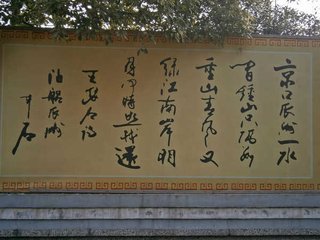 京口瓜洲一水
间鍾山只隔數
重山春风又
绿江南岸明
月何時照我還
王安石诗
泊船瓜洲
中石